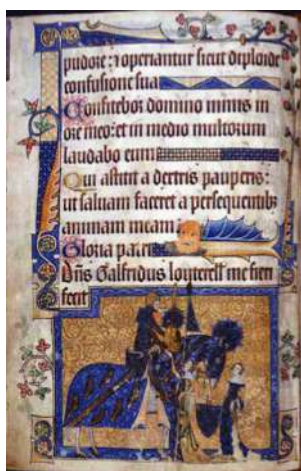 pudore: ⁊ operiantur sicut diploide
confusione sua
Confitebor domino nimis in
ore meo: et in medio multorum
laudabo eum
Qui astitit a dextris pauperis:
ut saluam faceret a persequentibꝫ
animam meam
Gloria patri
Dn̄s Galfridus louterell me fieri
fecit